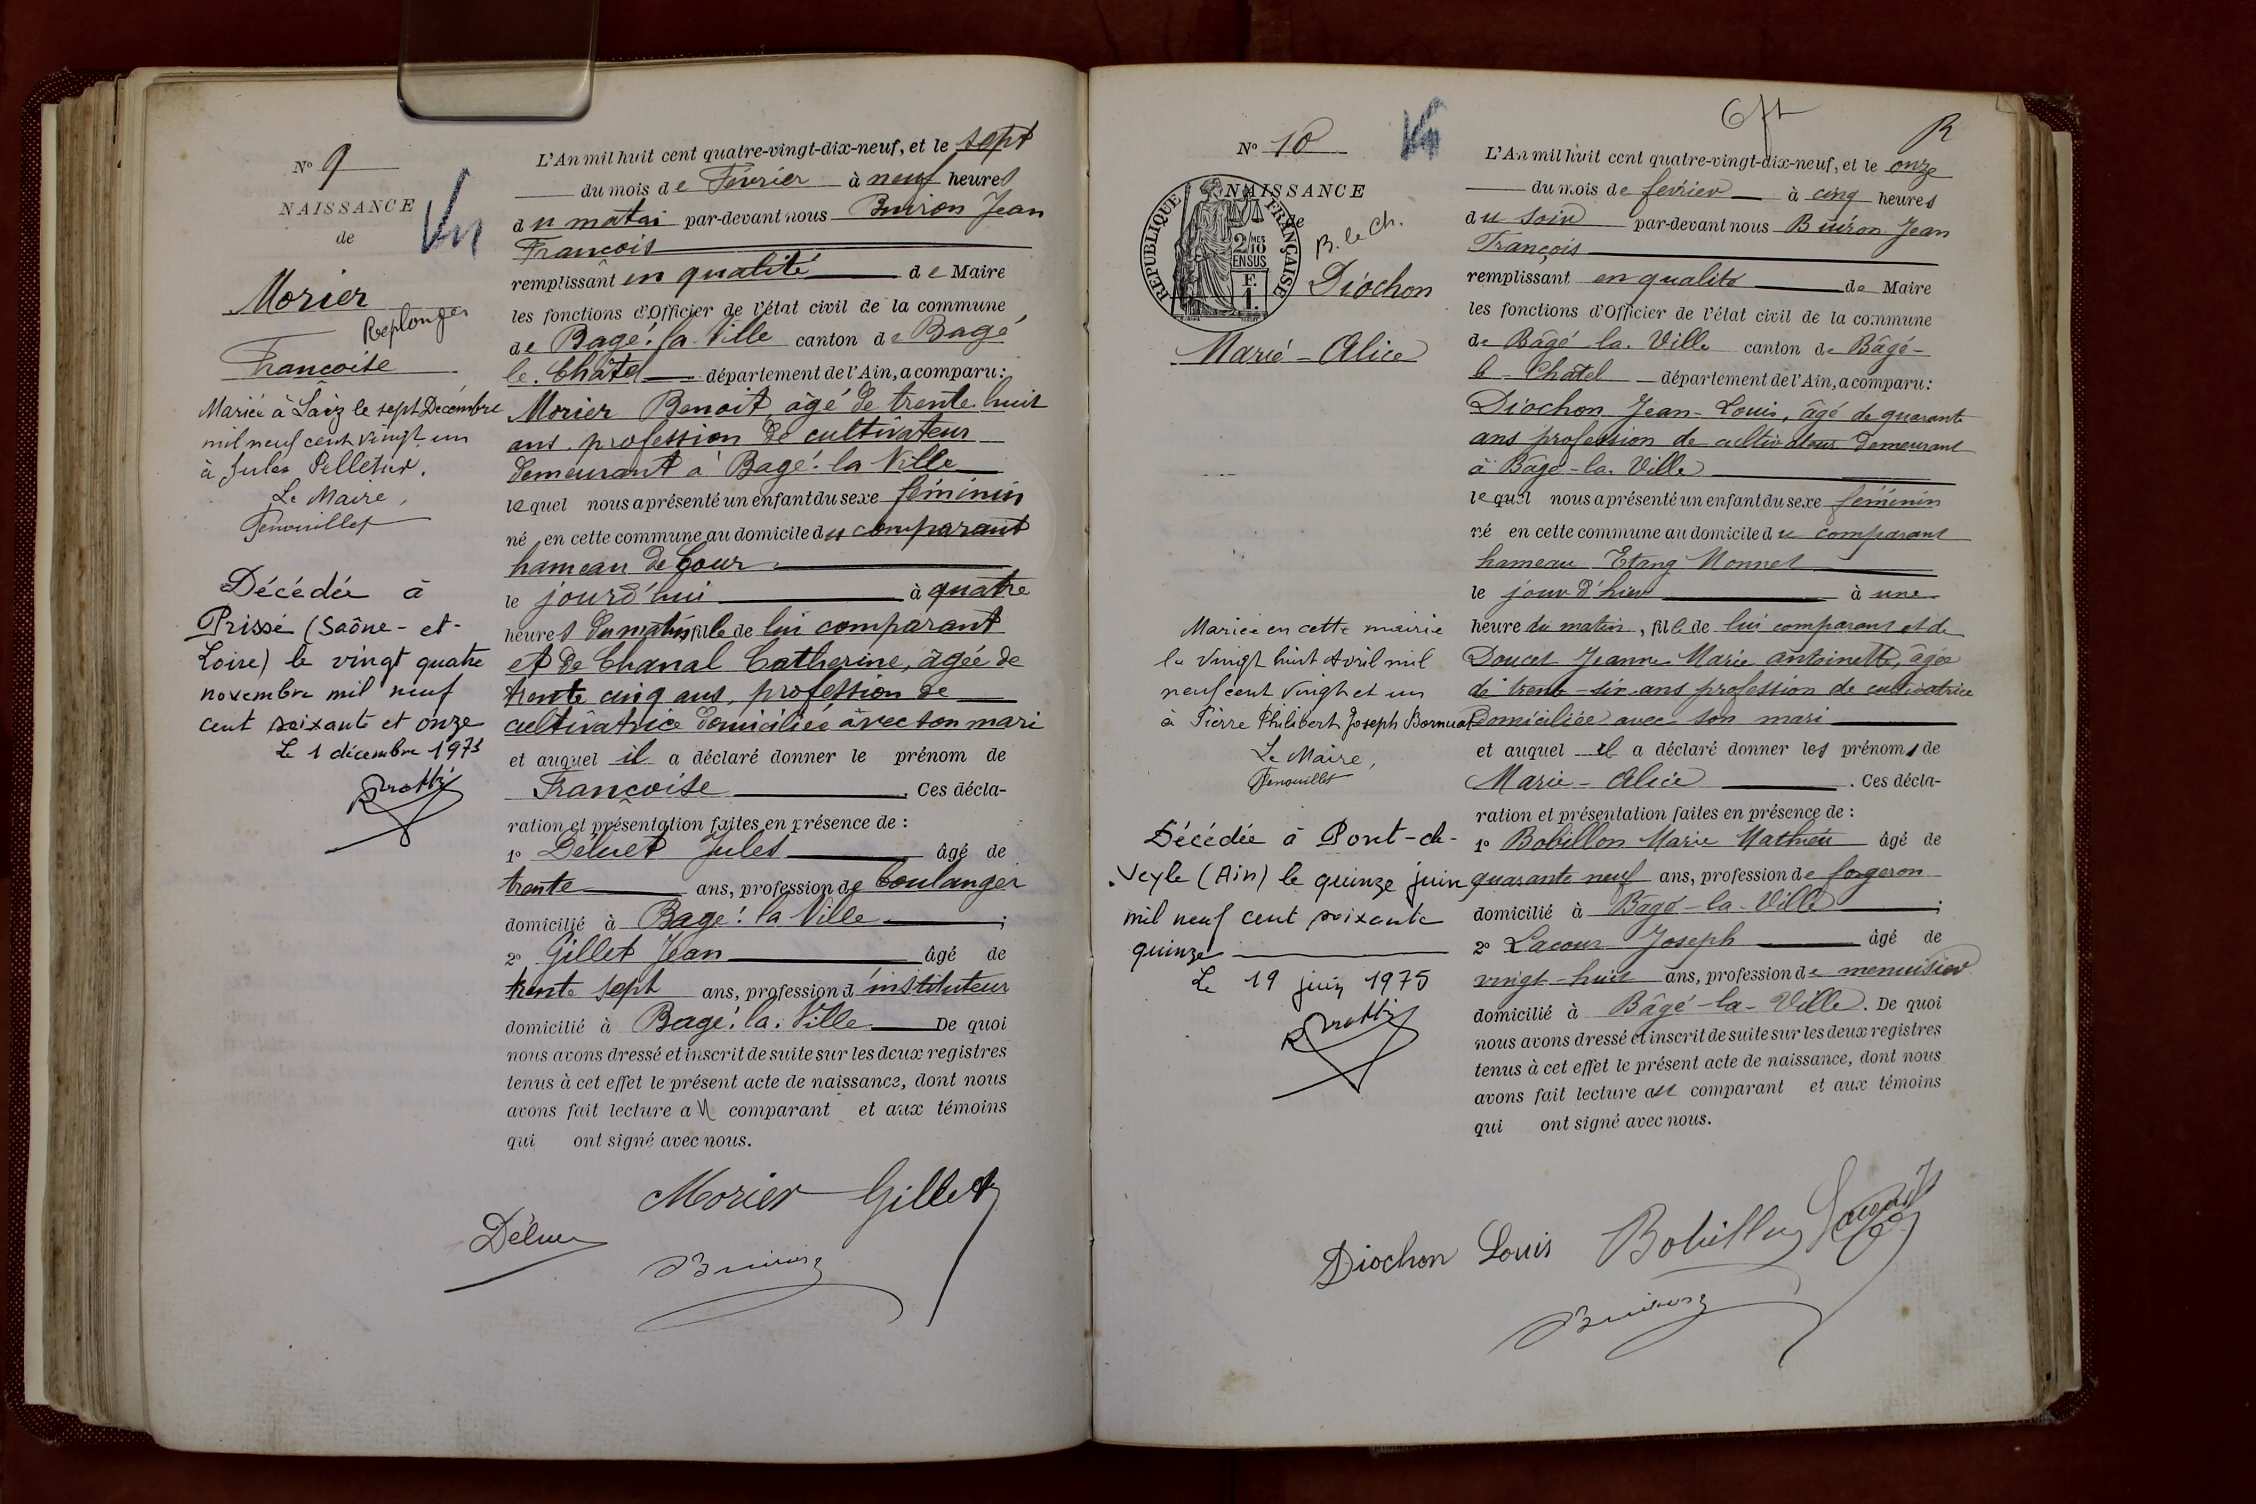 N° 9
NAISSANCE
de
Morier
Replonges
Francoise
Mariée à Laiz le sept Décembre
mil neuf cent vingt un
à Jules Pelletier.
Le Maire,
Fenouillet
Décédée à
Prissé (Saône-et-
Loire) le vingt quatre
novembre mil neuf
cent soixante et onze
Le 1 décembre 1971
L'An mil huit cent quatre-vingt-dix-neuf, et le sept
du mois de Février à neuf heures
du matin par-devant nous Buiron Jean
François
remplissant en qualité de Maire
les fonctions d'Officier de l'état civil de la commune
de Bagé-la-Ville canton de Bagé
le-Châtel département de l'Ain, a comparu:
Morier Benoit, âgé de trente-huit
ans profession de cultivateur
demeurant à Bagé-la-Ville
lequel nous a présenté un enfant du sexe féminin
né en cette commune au domicile du comparant
hameau de Cour
le jourd'hui à quatre
heures du matin, fille de lui comparant
et de Chanal Catherine, âgée de
trente cinq ans, profession de
cultivatrice domiciliée avec son mari
et auquel il a déclaré donner le prénom de
Françoise. Ces décla-
ration et présentation faites en présence de :
1° Déluet Jules âgé de
trente ans, profession de boulanger
domicilié à Bagé-la-Ville ;
2° Gillet Jean âgé de
trente sept ans, profession d'instituteur
domicilié à Bagé-la-Ville. De quoi
nous avons dressé et inscrit de suite sur les deux registres
tenus à cet effet le présent acte de naissance, dont nous
avons fait lecture au comparant et aux témoins
qui ont signé avec nous.
Morier Gillet
Déluet
Buiron
N° 10
NAISSANCE
de
B. le Ch.
RÉPUBLIQUE FRANÇAISE
2/10 MES
EN SUS
F.
1.
Diochon
Marie-Alice
Mariée en cette mairie
le vingt huit Avril mil
neuf cent vingt et un
à Pierre Philibert Joseph Bornuat
Le Maire,
Fenouillet
Décédée à Pont-de-
Veyle (Ain) le quinze juin
mil neuf cent soixante
quinze
Le 19 juin 1975
R
L'An mil huit cent quatre-vingt-dix-neuf, et le onze
du mois de février à cinq heures
du soir par-devant nous Buiron Jean
François
remplissant en qualité de Maire
les fonctions d'Officier de l'état civil de la commune
de Bâgé-la-Ville canton de Bâgé-
le-Châtel département de l'Ain, a comparu:
Diochon Jean-Louis, âgé de quarante
ans profession de cultivateur demeurant
à Bâgé-la-Ville
lequel nous a présenté un enfant du sexe féminin
né en cette commune au domicile du comparant
hameau Etang Monnet
le jour d'hier à une
heure du matin, fille de lui comparant et de
Doucet Jeanne Marie antoinette, âgée
de trente-six ans profession de cultivatrice
Domiciliée avec son mari
et auquel il a déclaré donner les prénoms de
Marie-Alice. Ces décla-
ration et présentation faites en présence de :
1° Bobillon Marie Mathieu âgé de
quarante neuf ans, profession de forgeron
domicilié à Bâgé-la-Ville ;
2° Lacour Joseph âgé de
vingt-huit ans, profession de menuisier
domicilié à Bâgé-la-Ville. De quoi
nous avons dressé et inscrit de suite sur les deux registres
tenus à cet effet le présent acte de naissance, dont nous
avons fait lecture au comparant et aux témoins
qui ont signé avec nous.
Diochon Louis Bobillon
Buiron